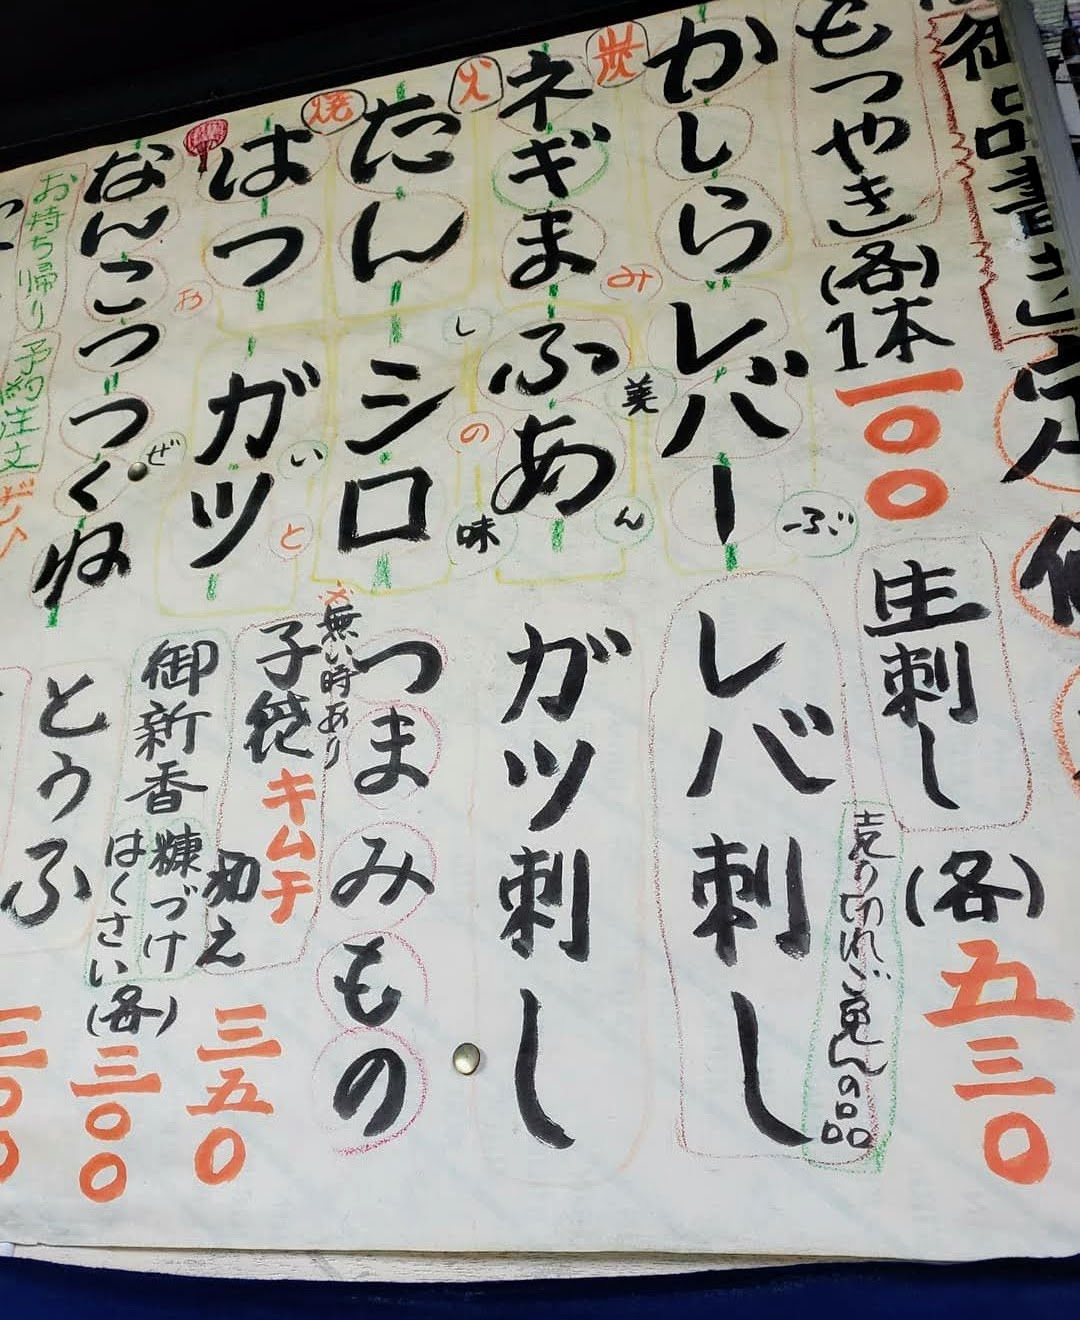 御品書き
もつやき(各)1本一〇〇
かしら
レバー
ネギま
ふあ
たん
シロ
はつ
ガツ
なんこつ
つくね
炭火焼
お持ち帰り予約注文ぜひ
生刺し(各)五三〇
売り切れご免の品
レバ刺し
ガツ刺し
つまみもの
※無い時あり
子袋キムチ和え三五〇
御新香糠づけはくさい(各)三〇〇
とうふ
三〇〇